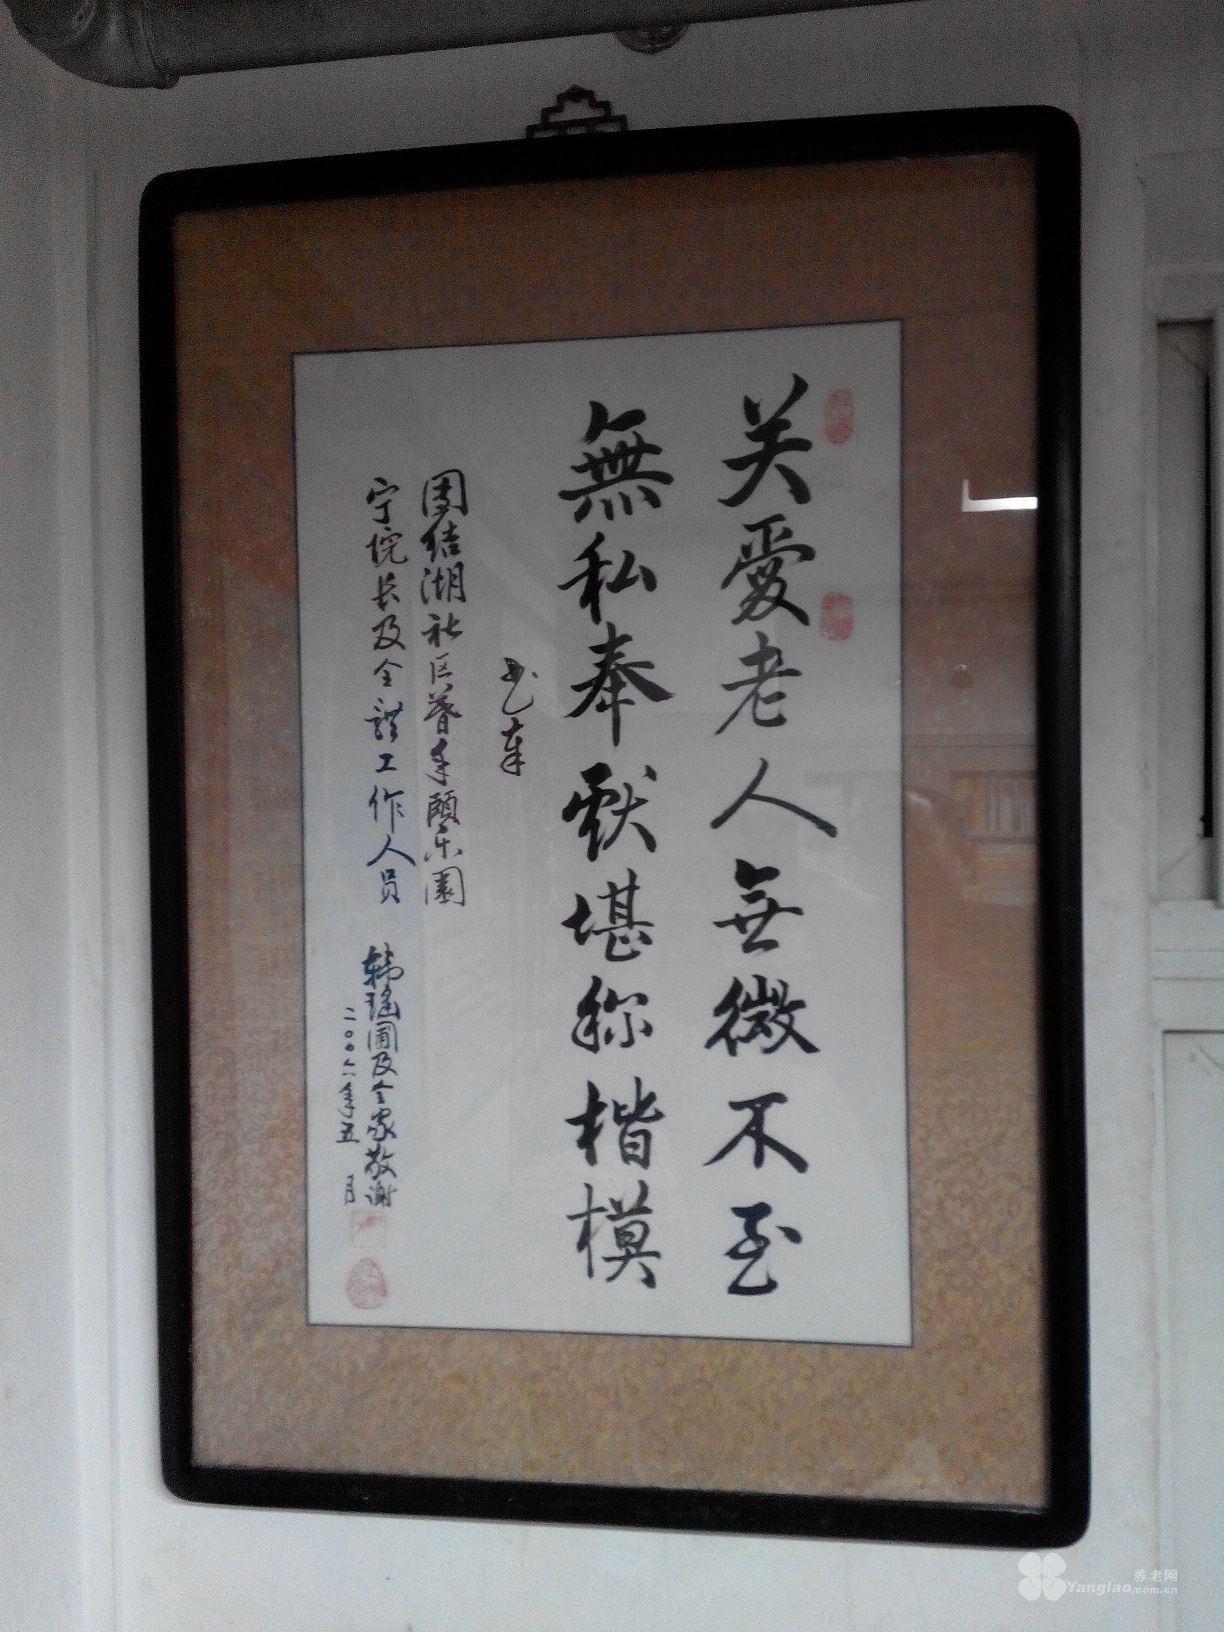 关愛老人無微不至
無私奉献堪称楷模
书奉
团结湖社区暮年颐乐園
宁院长及全体工作人员
韩瑶圃及全家敬谢
二〇〇六年五月
养老网
Yanglao.com.cn